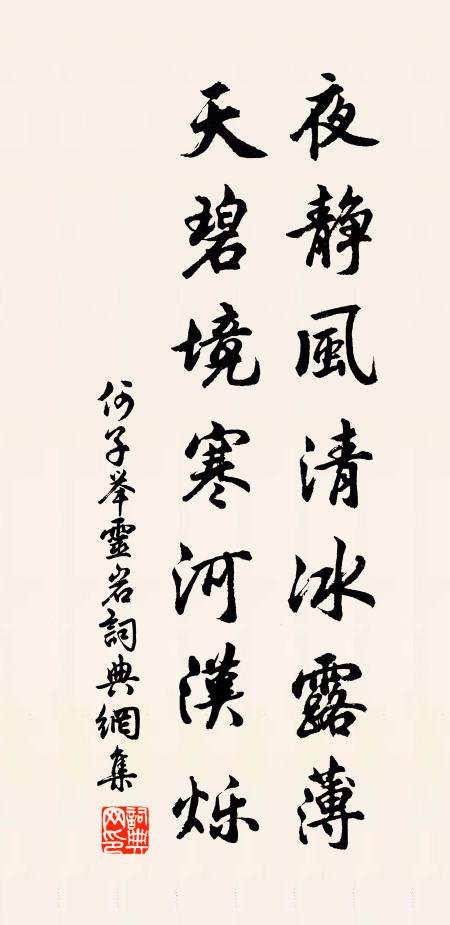 夜静風清冰露薄
天碧境寒河漢烁
何子举靈岩詞典網集
詞典
网印